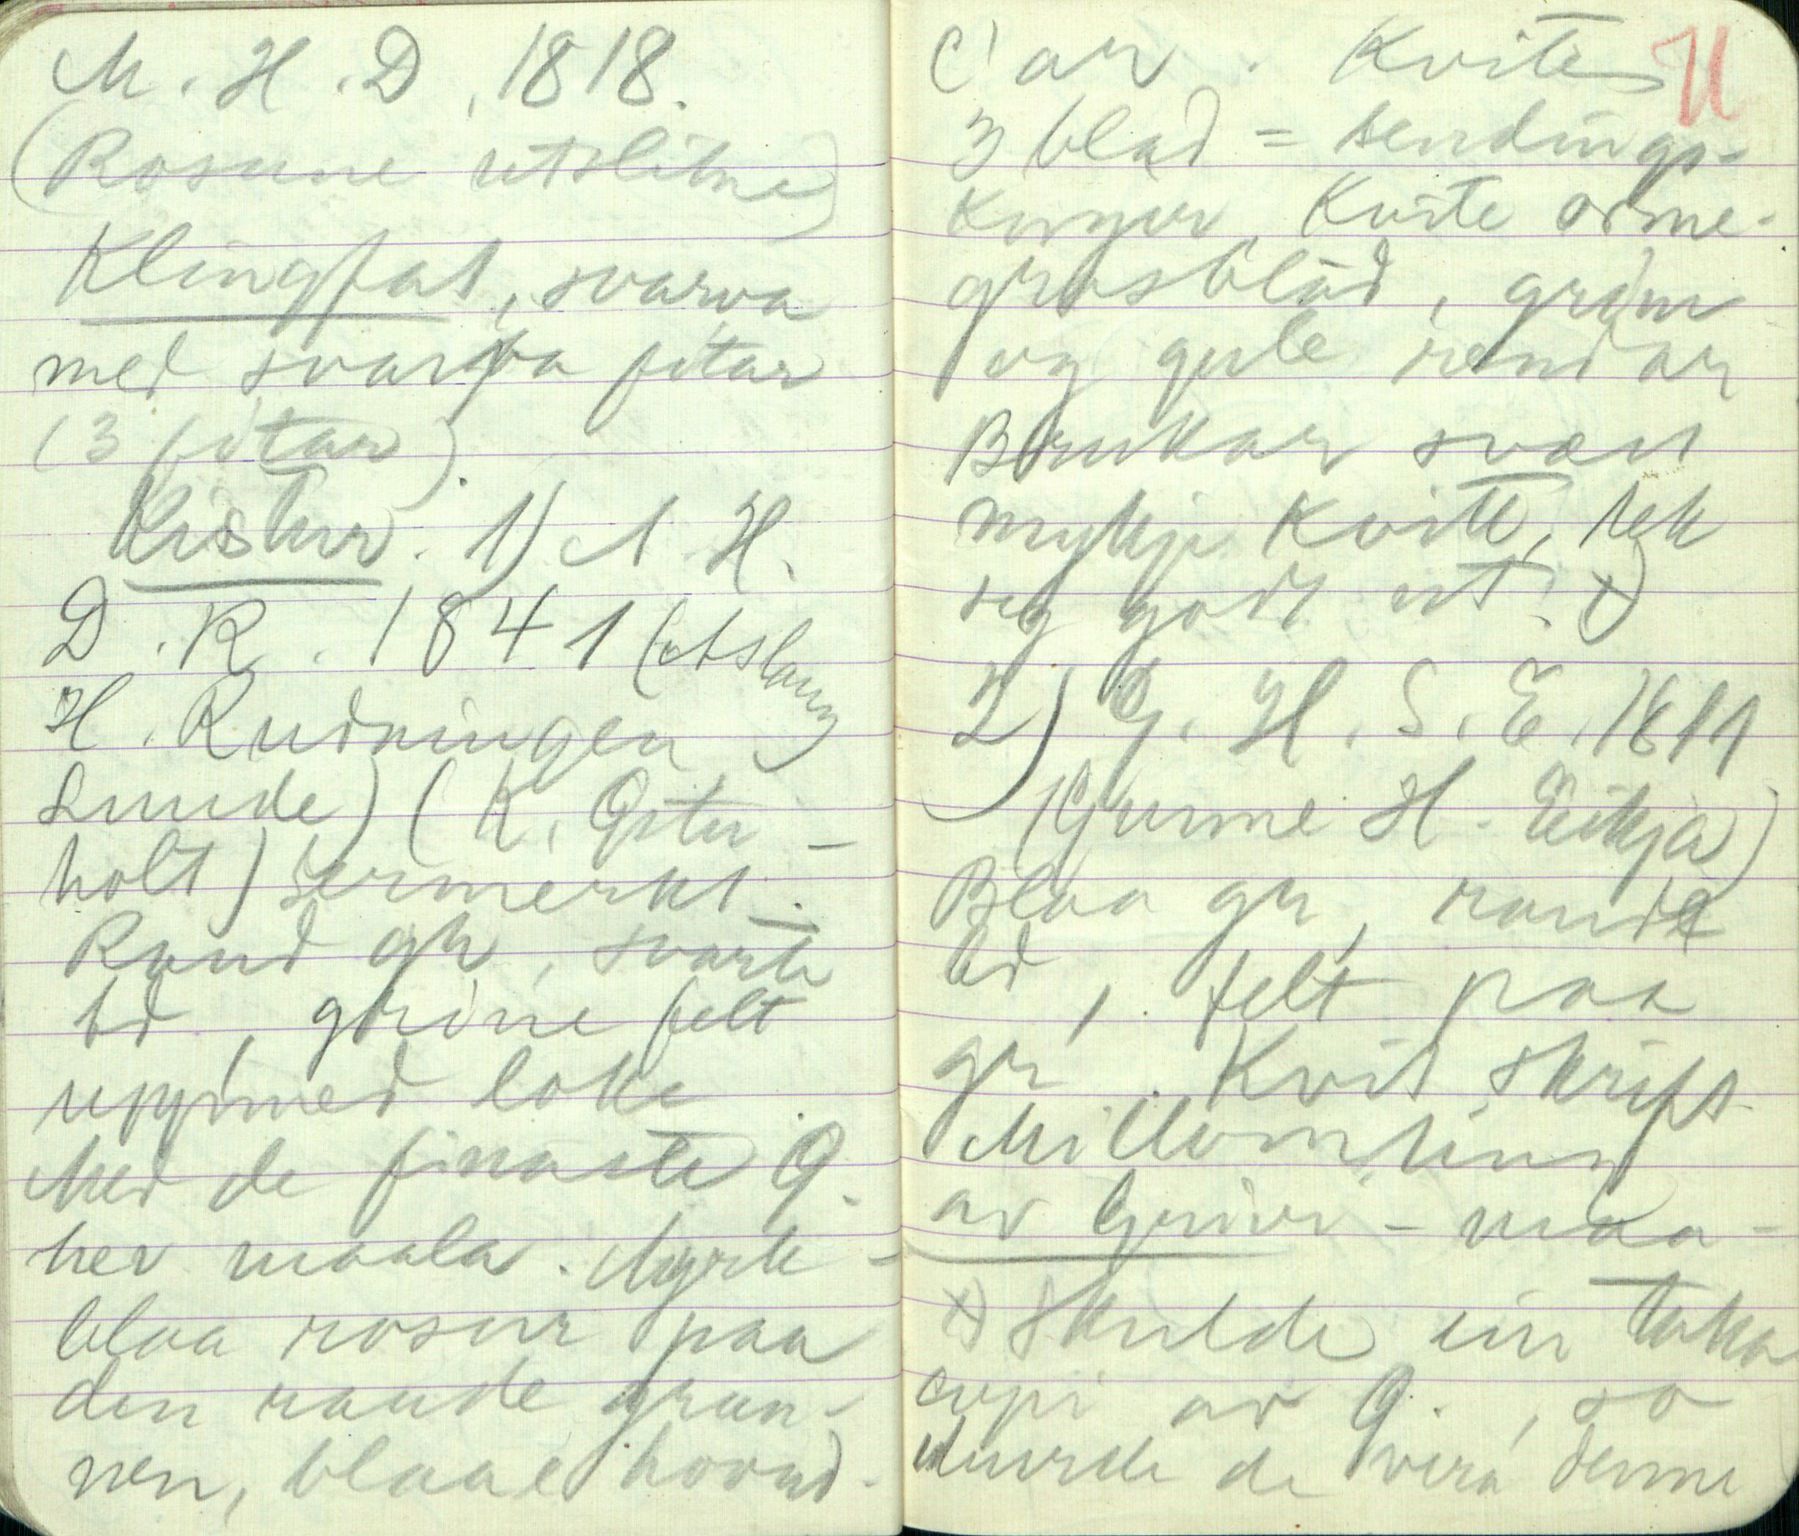 M. H. D. 1818.
(Rosune utslitne)
Klingfat, svarva
med svarva fötar
(3 fötar).
Kistur. 1) A. H.
D. R. 1841 (Aslaug
H. Rudningen
Lunde) (K. Öster-
holt) Sermerkt.
Raud gr, svarte
bd, gröne felt
uppimed loke
Med de finaste Ö.
hev maala. Myrk-
blaa rosur paa
den raude grun-
nen, blaae hovud-
C'ar. Kvite
3 blad = sendings-
Kvite orme-
grasblad, gröne
og gule rendar
Brukar svært
mykje kvitt, tek
seg godt ut. x)
2) G. H. S. E. 1811
(Gunne H. Eikja)
Blaa gr, raude
bd, felt paa
gr. Kvit skrift
Millomting
av - maa-
x) Skulde ein taka
copi av Ö., so
burde de vera denne